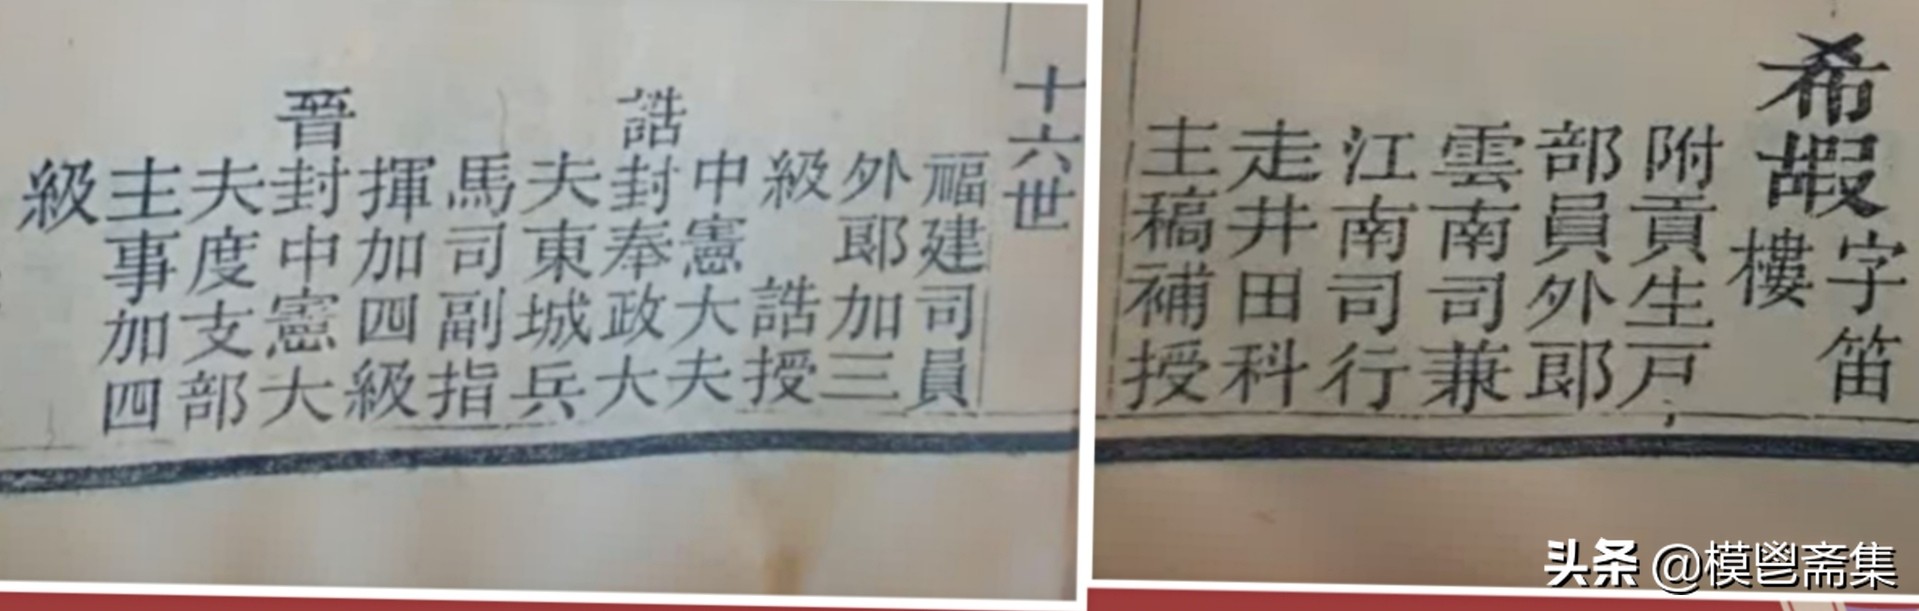 希嘏
字笛
樓
附貢生戶
部員外郎
雲南司兼
江南司行
走井田科
主稿補授
十六世
福建司員
外郎加三
級 誥授
中憲大夫
誥封奉政大
夫東城兵
馬司副指
揮加四級
晉封中憲大
夫度支部
主事加四
級
头条 @模鬯斋集